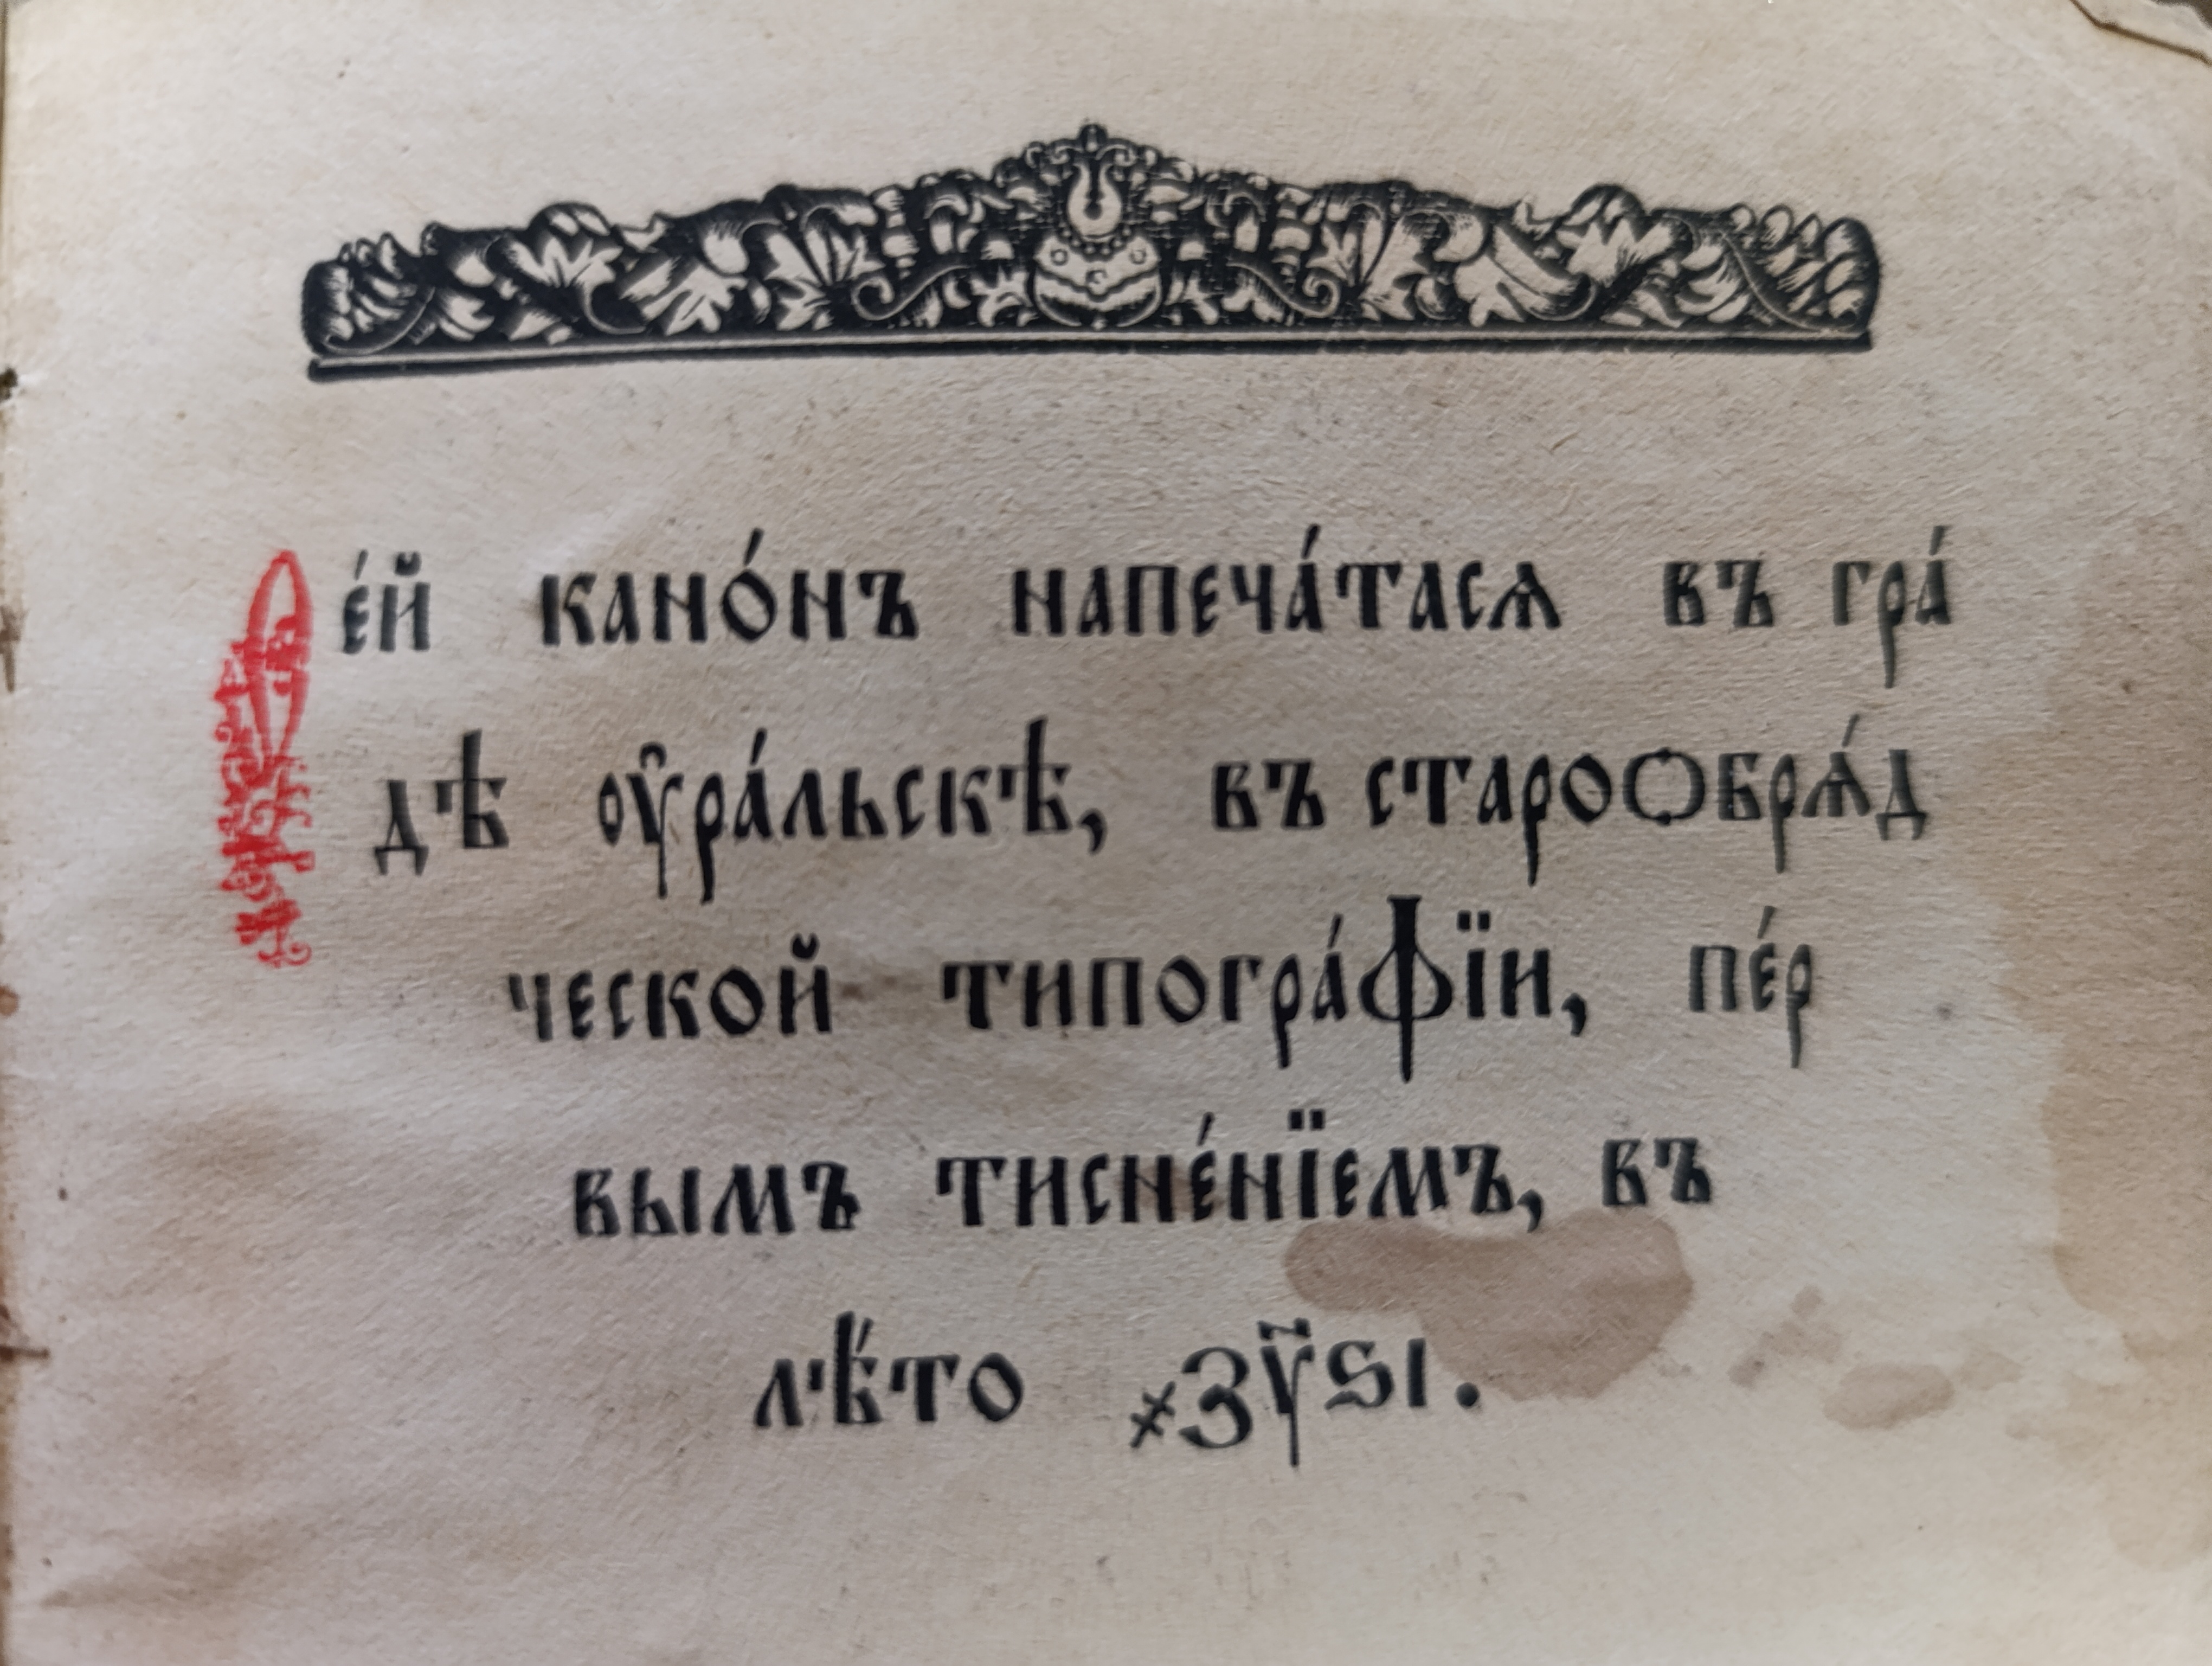 Се́й кано́нъ напеча́тасѧ въ гра́
дѣ ᲂу҆ра́льскѣ, въ староѻбрѧ́д
ческой типогра́фїи, пе́р
вымъ тисне́нїемъ, въ
лѣ́то ҂зу҃ѕі.